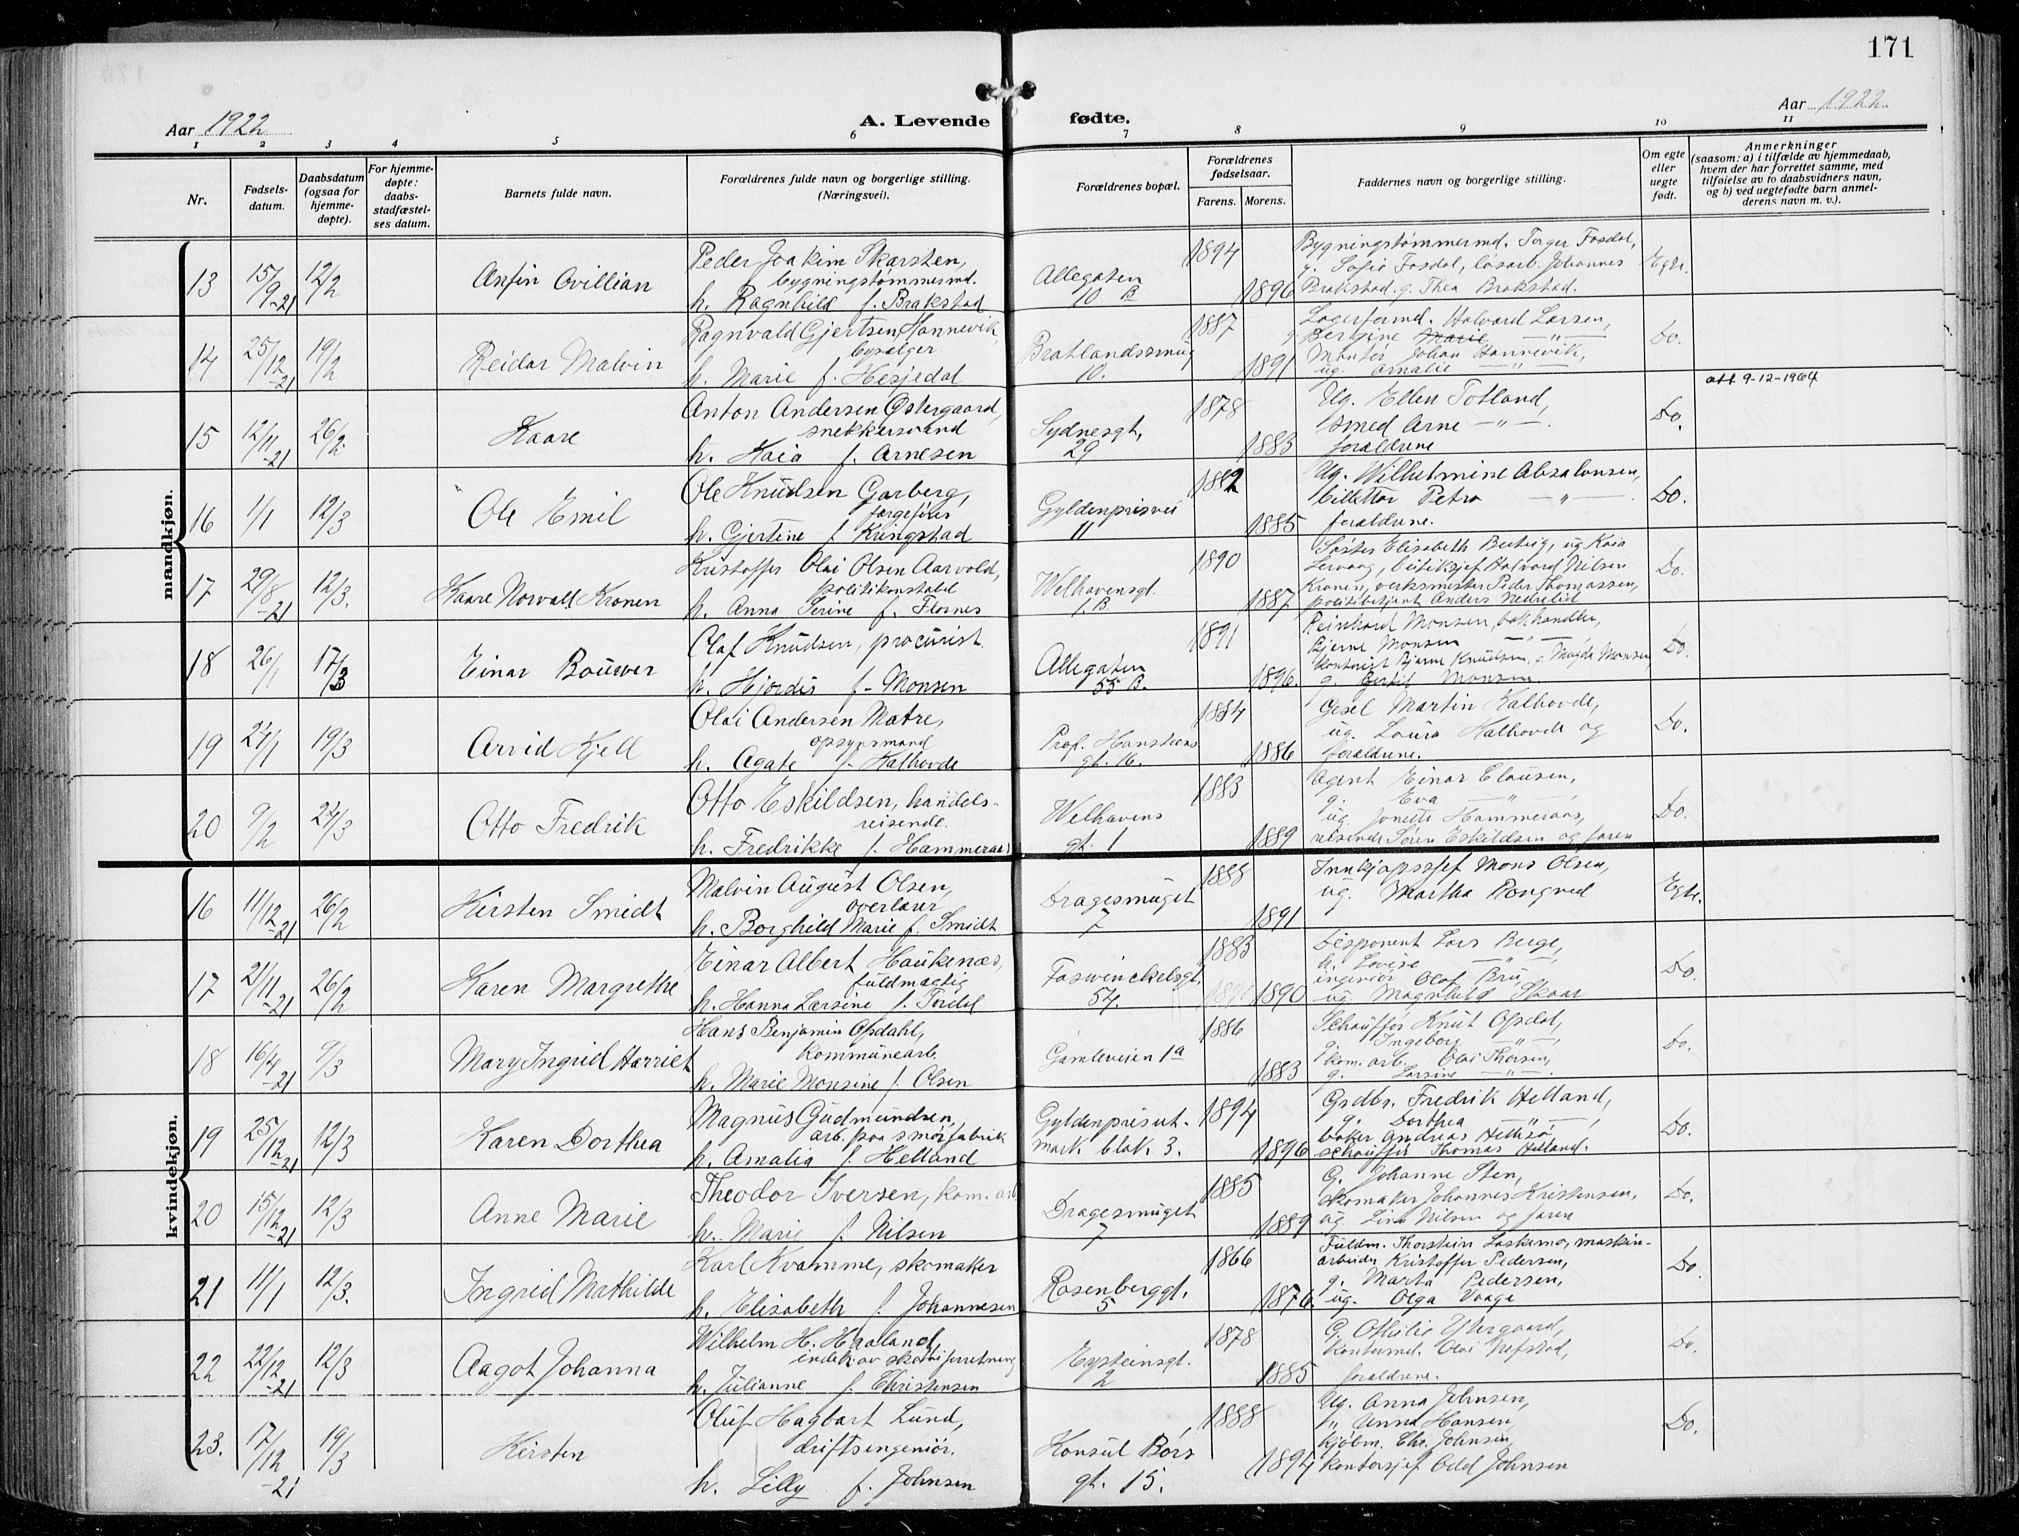 171
Aar 1922
A. Levende
fødte.
Aar 1922
1 2 3 4 5 6 7 8 9 10 11
Nr.
Fødsels-
datum.
Daabsdatum
(ogsaa for
hjemme-
døpte).
For hjemme-
døpte:
daabs-
stadfæstel-
ses datum.
Barnets fulde navn.
Forældrenes fulde navn og borgerlige stilling.
(Næringsvei).
Forældrenes bopæl.
Forældrenes
fødselsaar.
Farens. Morens.
Faddernes navn og borgerlige stilling.
Om egte
eller
uegte
født.
Anmerkninger
(saasom: a) i tilfælde av hjemmedaab,
hvem der har forrettet samme, med
tilføielse av to daabsvidners navn,
og b) ved uegtefødte barn anmel-
derens navn m. v.).
mandkjøn.
13 15/9-21 12/2 Anfin Ovillian
Peder Joakim Skarsten,
bygningstømmermd.
h. Ragnhild f. Brakstad
Allegaten
10 B
1894 1896
Bygningstømmermd. Torger Fosdal,
g. Sofie Fosdal, løsarb. Johannes
Brakstad. g. Thea Brakstad.
Egte.
14 25/12-21 19/2 Reidar Malvin
Ragnvald Gjertsen Hannevik,
bysælger
h. Marie f. Hesjedal
Bratlandssmug
10.
1887 1891
Lagerformd. Halvard Larsen,
g. Bergine Marie — " —
Montør Johan Hannevik,
ug. Amalie — " —
Do.
att 9-12-1964
15 12/11-21 26/2. Kaare
Anton Andersen Østergaard,
snekkersvend
h. Kaia f. Arnesen
Sydnesgt,
29
1878 1883
Ug. Ellen Totland,
smed Arne — " —.
forældrene
Do.
16 1/1 12/3 Ole Emil
Ole Knudsen Garberg,
h. Gjertine f. Kringstad
Gyldenprisvei
11
1882 1885
Ug. Wilhelmine Absalonsen,
billettør Petra — " —
forældrene.
Do.
17 29/8-21 12/3. Kaare Norvall Kronen
Kristoffer Olai Olsen Aarvold,
politikonstabel
h. Anna Serine f. Flornes
Welhavensgt.
1 B
1890 1887
Søster Elisabeth ug Kaia
Halvard Nilsen
Kronen, verksmester Peder Thomassen,
politibetjent Anders Nedrelid
Do.
18 26/1 17/3 Einar Bouwer
Olaf Knudsen, procurist.
h. Hjørdis f. Monsen
Allegaten
55 B.
1891 1896.
Reinhard Monsen, bokhandler,
Bjarne Monsen — " —
kontorist Bjarne Knudsen, g. Magda Monsen
g. Monsen.
Do.
19 24/1 19/3 Arvid Kjell
Olai Andersen Matre,
opsynsmand
h. Agate f. Kalhovde
Prof. Hansteens
gt. 16.
1884 1886
Gesel Martin Kalhovde,
ug. Laura Kalhovde og
forældrene.
Do.
20 9/2 24/3 Otto Fredrik
Otto Eskildsen, handels-
reisende.
h. Fredrikke f. Hammeraas
Welhavens
gt. 1
1883 1889
Agent Einar Clausen,
g. Eva — " —
ug. Jonette Hammeraas,
reisende Søren Eskildsen og faren
Do.
kvindekjøn.
16 11/12-21 26/2 Kirsten Smidt
Malvin August Olsen,
overlærer
h. Borghild Marie f. Smidt
Dragesmuget
7
1888 1891
Innkjøpssjef Mons Olsen,
ug. Martha Rongved
Egte.
17 21/11-21 26/2 Karen Margrethe
Einar Albert Haukenæs,
fuldmægtig
h. Hanna Larsine f. Tordal
Foswinckelsgt,
54.
1883 1890
Disponent Lars Berge,
h. Lovise — " —
ingeniør Olaf Bru,
ug Magnhild Skaar
Do.
18 16/4-21 9/3 Mary Ingrid Harriet
Hans Benjamin Opdahl,
kommunearb.
h. Marie Monsine f. Olsen
Gamleveien 1a
1886 1883
Schauffør Knut Opdal,
g. Ingeborg — " —
kom. arb. Olai Thorsen,
g. Larsine — " —.
Do.
19 25/12-21 12/3 Karen Dorthea
Magnus Gudmundsen,
arb. paa smørfabrik
h. Amalia f. Helland
Gyldenprisut-
mark blok 3.
1894 1896
Grdbr. Fredrik Helland,
g. Dorthea — " —
baker Andreas Hellisø
schauffør Thomas Helland.
Do.
20 15/12-21 12/3 Anne Marie
Theodor Iversen, kom. arb
h. Marie f. Nilsen
Dragesmuget
7
1885 1889
G. Johanne Sten,
skomaker Johannes Kristensen,
ug Lina Nilsen og faren
Do.
21 11/1 12/3. Ingrid Mathilde
Karl Kvamme, skomaker
h. Elisabeth f. Johannesen
Rosenberggt.
5
1866 1876.
Fuldm. Thorstein maskin-
arbeider Kristoffer Pedersen,
g. Marta Pedersen,
ug. Olga Vaage
Do.
22 22/12-21 12/3 Aagot Johanna
Wilhelm H. Haaland,
indeh. av skotøiforretning
h. Julianne f. Christensen
Eysteinsgt.
2
1878 1885
G. Othilie Ystergaard,
kontormd. Olai Nefstad,
forældrene.
Do.
23. 17/12-21 19/3 Kirsten
Oluf Hagbart Lund,
driftsingeniør.
h. Lilly f. Johnsen
Konsul Børs
gt. 15.
1888 1894
Ug. Anna Johnsen,
" Unna Hansen,
kjøbm. Chr. Johnsen
kontorsjef Odd Johnsen
Do.